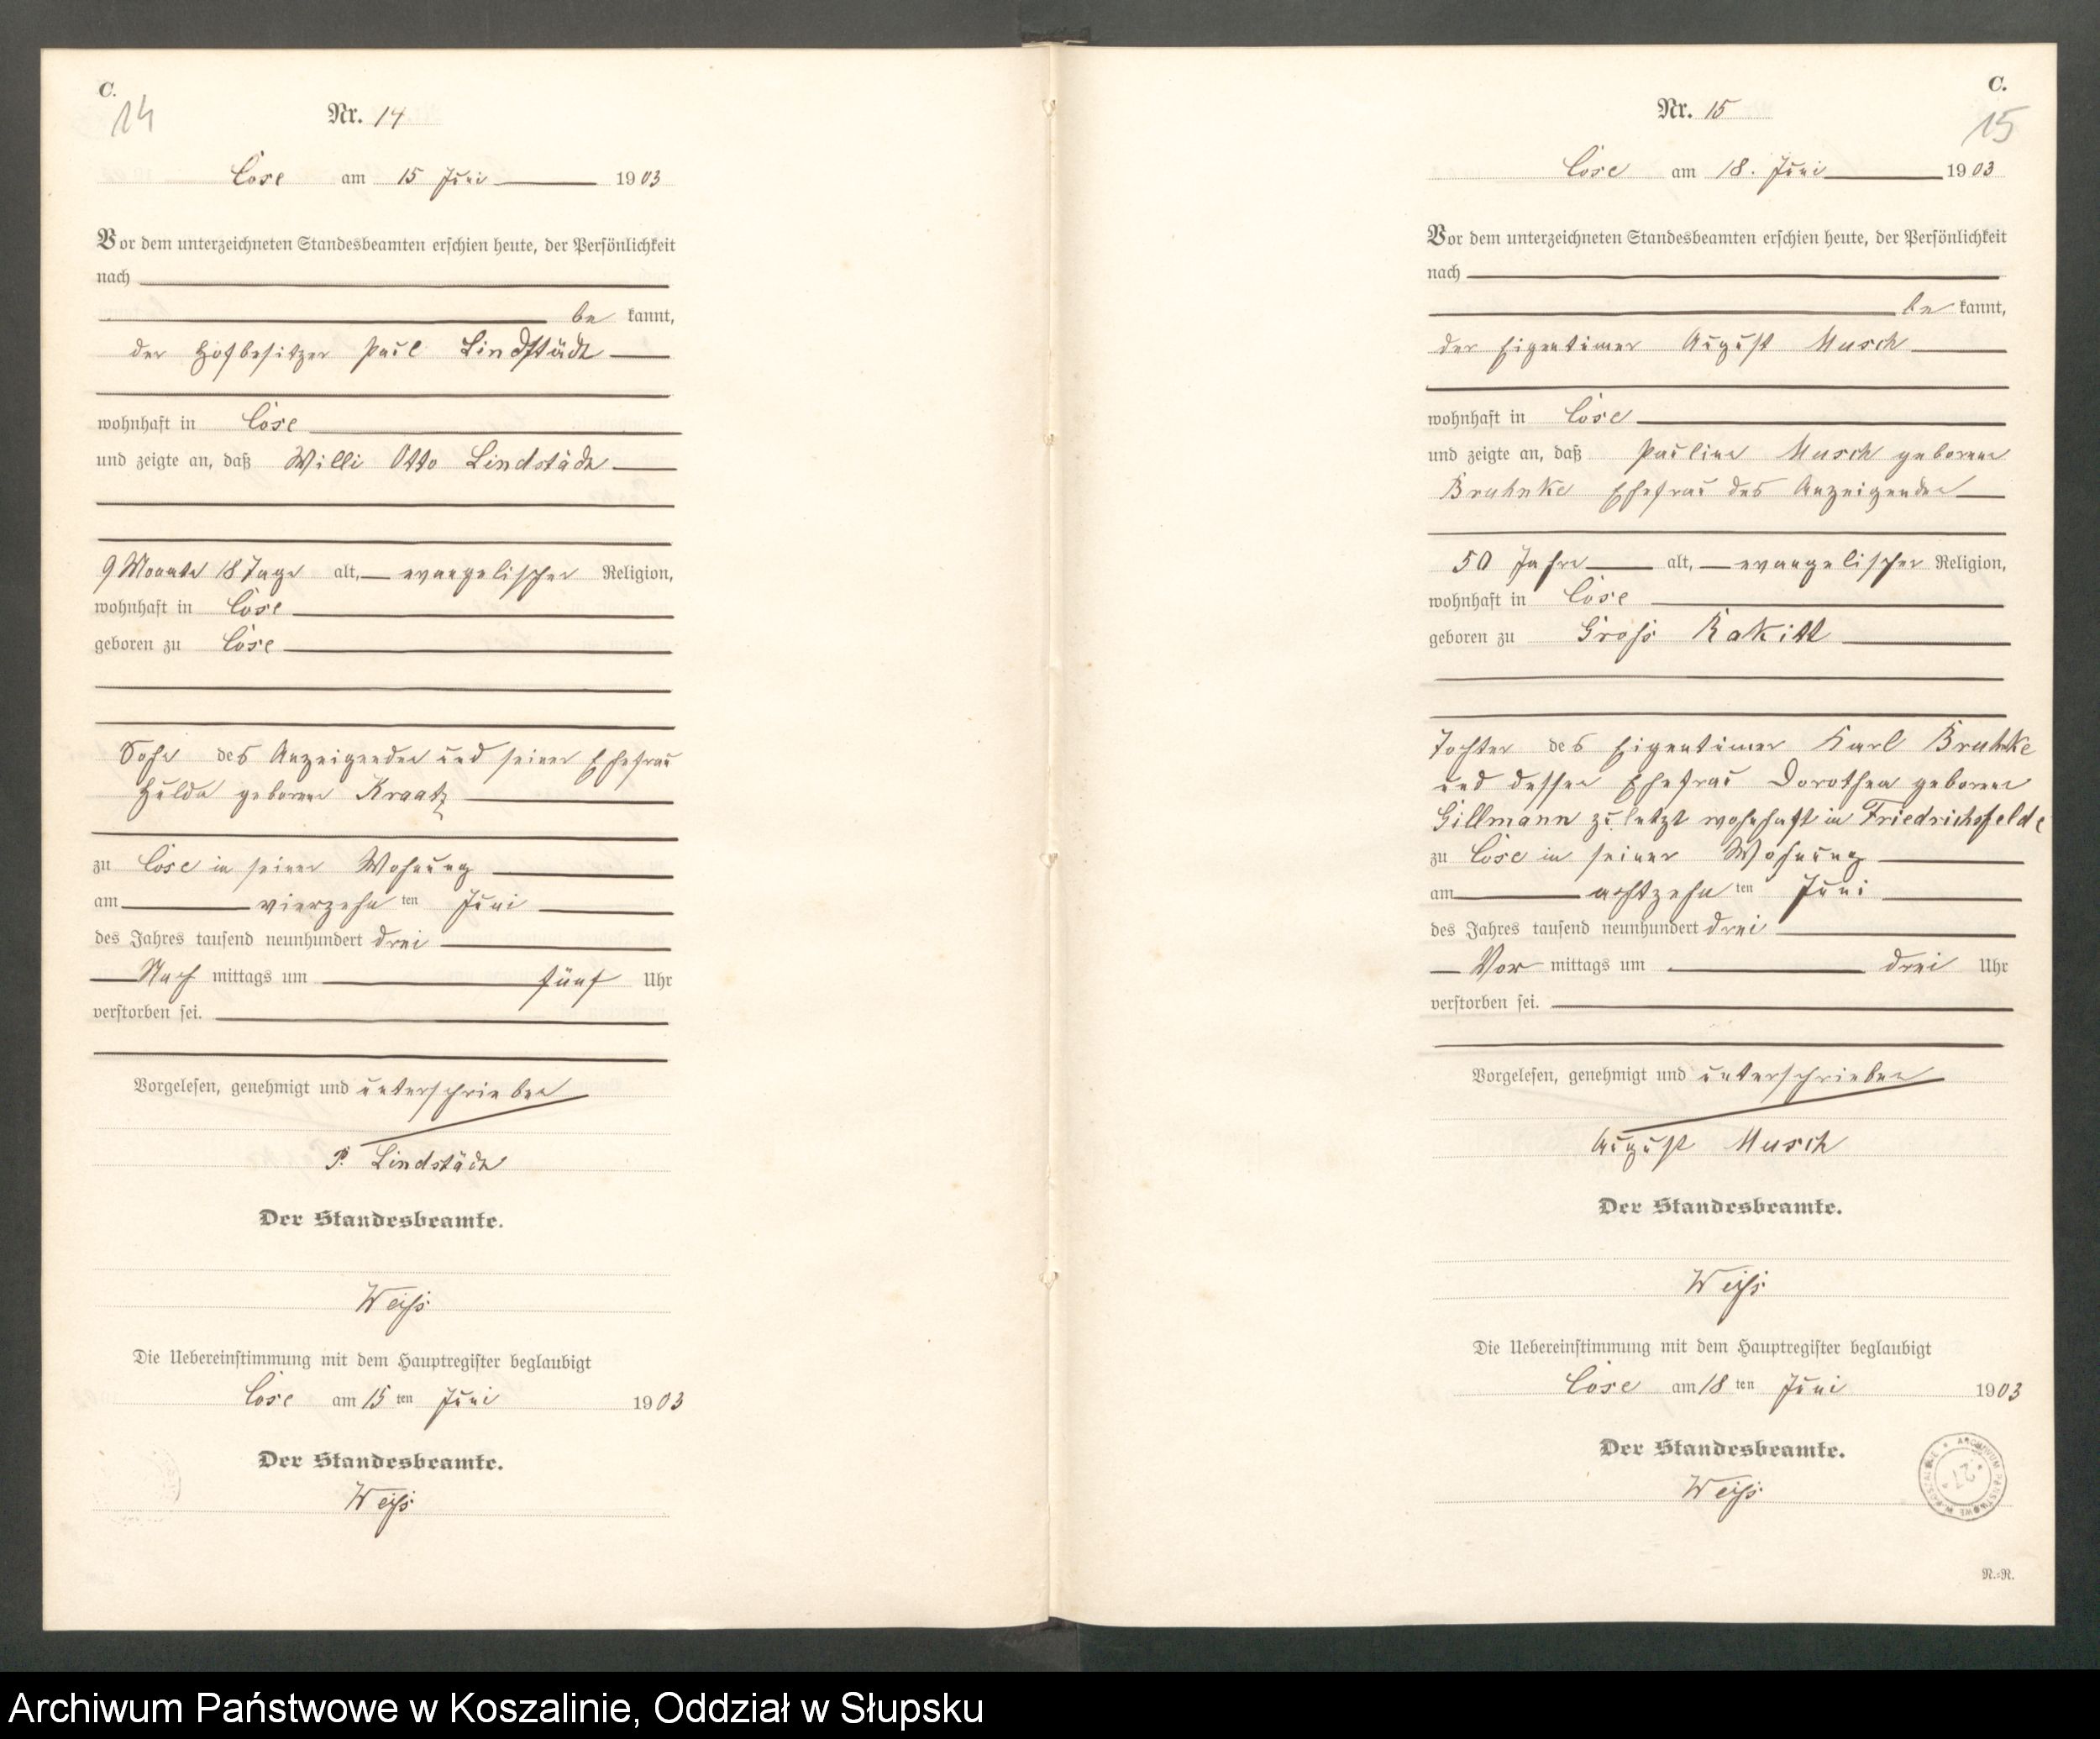 C.
14
Nr. 14
Cose am 15 Juni 1903
Vor dem unterzeichneten Standesbeamten erschien heute, der Persönlichkeit
nach
be kannt,
der Hofbesitzer Paul Lindstädt
wohnhaft in Cose
und zeigte an, daß Willi Otto Lindstädt
9 Monate 18 Tage alt, evangelischer Religion,
wohnhaft in Cose
geboren zu Cose
Sohn des Anzeigenden und seiner Ehefrau
Hulda geborene Kraatz
zu Cose in seiner Wohnung
am vierzehn ten Juni
des Jahres tausend neunhundert drei
Nach mittags um fünf Uhr
verstorben sei.
Vorgelesen, genehmigt und unterschrieben
P. Lindstädt
Der Standesbeamte.
Weiß
Die Uebereinstimmung mit dem Hauptregister beglaubigt
Cose am 15 ten Juni 1903
Der Standesbeamte.
Weiß
C.
15
Nr. 15
Cose am 18. Juni 1903
Vor dem unterzeichneten Standesbeamten erschien heute, der Persönlichkeit
nach
be kannt,
der Eigentümer August Musch
wohnhaft in Cose
und zeigte an, daß Pauline Musch geborene
Bruhnke Ehefrau des Anzeigenden
50 Jahre alt, evangelischer Religion,
wohnhaft in Cose
geboren zu Groß Rakitt
Tochter des Eigentümer Karl Bruhnke
und dessen Ehefrau Dorothea geborene
Gillmann zuletzt wohnhaft in Friedrichsfelde
zu Cose in seiner Wohnung
am achtzehn ten Juni
des Jahres tausend neunhundert drei
Vor mittags um drei Uhr
verstorben sei.
Vorgelesen, genehmigt und unterschrieben
August Musch
Der Standesbeamte.
Weiß
Die Uebereinstimmung mit dem Hauptregister beglaubigt
Cose am 18 ten Juni 1903
Der Standesbeamte.
Weiß
ARCHIWUM PAŃSTWOWE W KOSZALINIE
27
N.=R.
Archiwum Państwowe w Koszalinie, Oddział w Słupsku